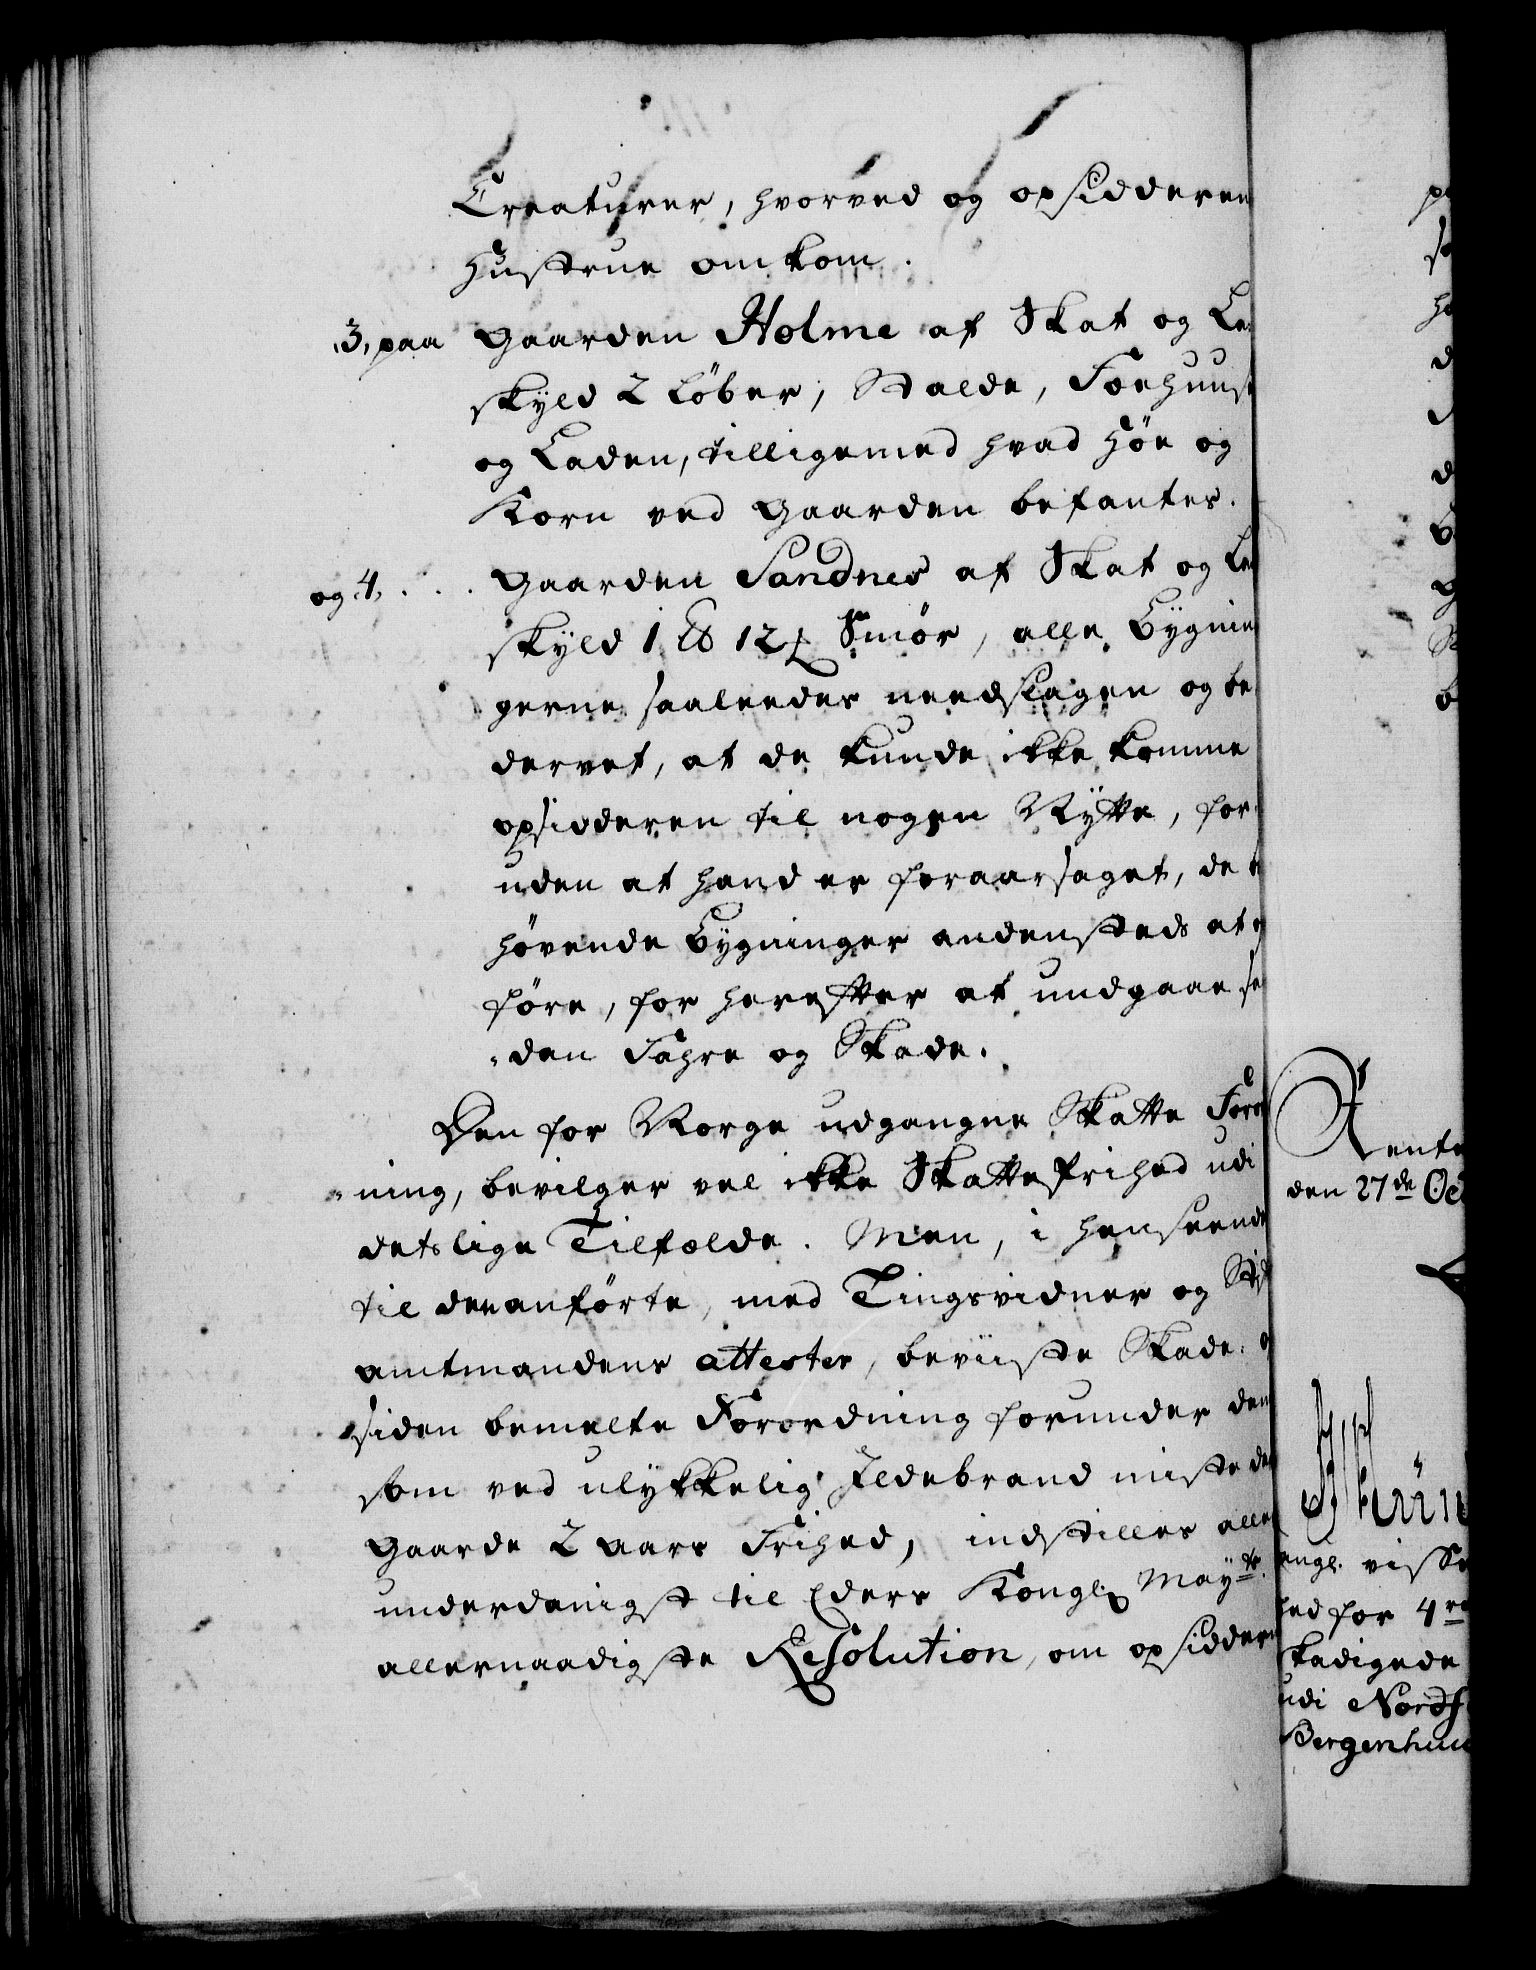 Creaturer, hvorved og opsidderen
Hustrue omkom.
3, paa Gaarden Holme af Skat og Le
skyld 2 Løber, Stalde, Foehuus
og Laden, tilligemed hvad Høe og
Korn ved Gaarden befantes.
og 4, . . . Gaarden Sandnes af Skat og Le
skyld 1 12 Smør, alle Bygnin
gerne saaleedes needslagen og be
dervet, at de kunde ikke komme
opsidderen til nogen Nytte, for
uden at hand er foraarsaget, de be
høvende Bygninger andensteds at op
føre, for herefter at undgaae saa
den Fahre og Skade.
Den for Norge udgangne Skatte Forord
ning, bevilger vel ikke Skattefrihed udi
detslige Tilfælde. Men, i henseende
til denanførte, med Tingsvidner og Stift
amtmandens attester, beviiste Skade, og
siden bemelte Forordning forunder dem
som ved ulykkelig Ildebrand miste deres
Gaarde 2 aars Frihed, indstilles aller
underdanigst til Eders Kongl. May.ts
allernaadigste Resolution, om opsidderne
Rente
den 27de Oct
angl. visse
hed for 4re
skadigede
udi Nordf
Bergenhuu